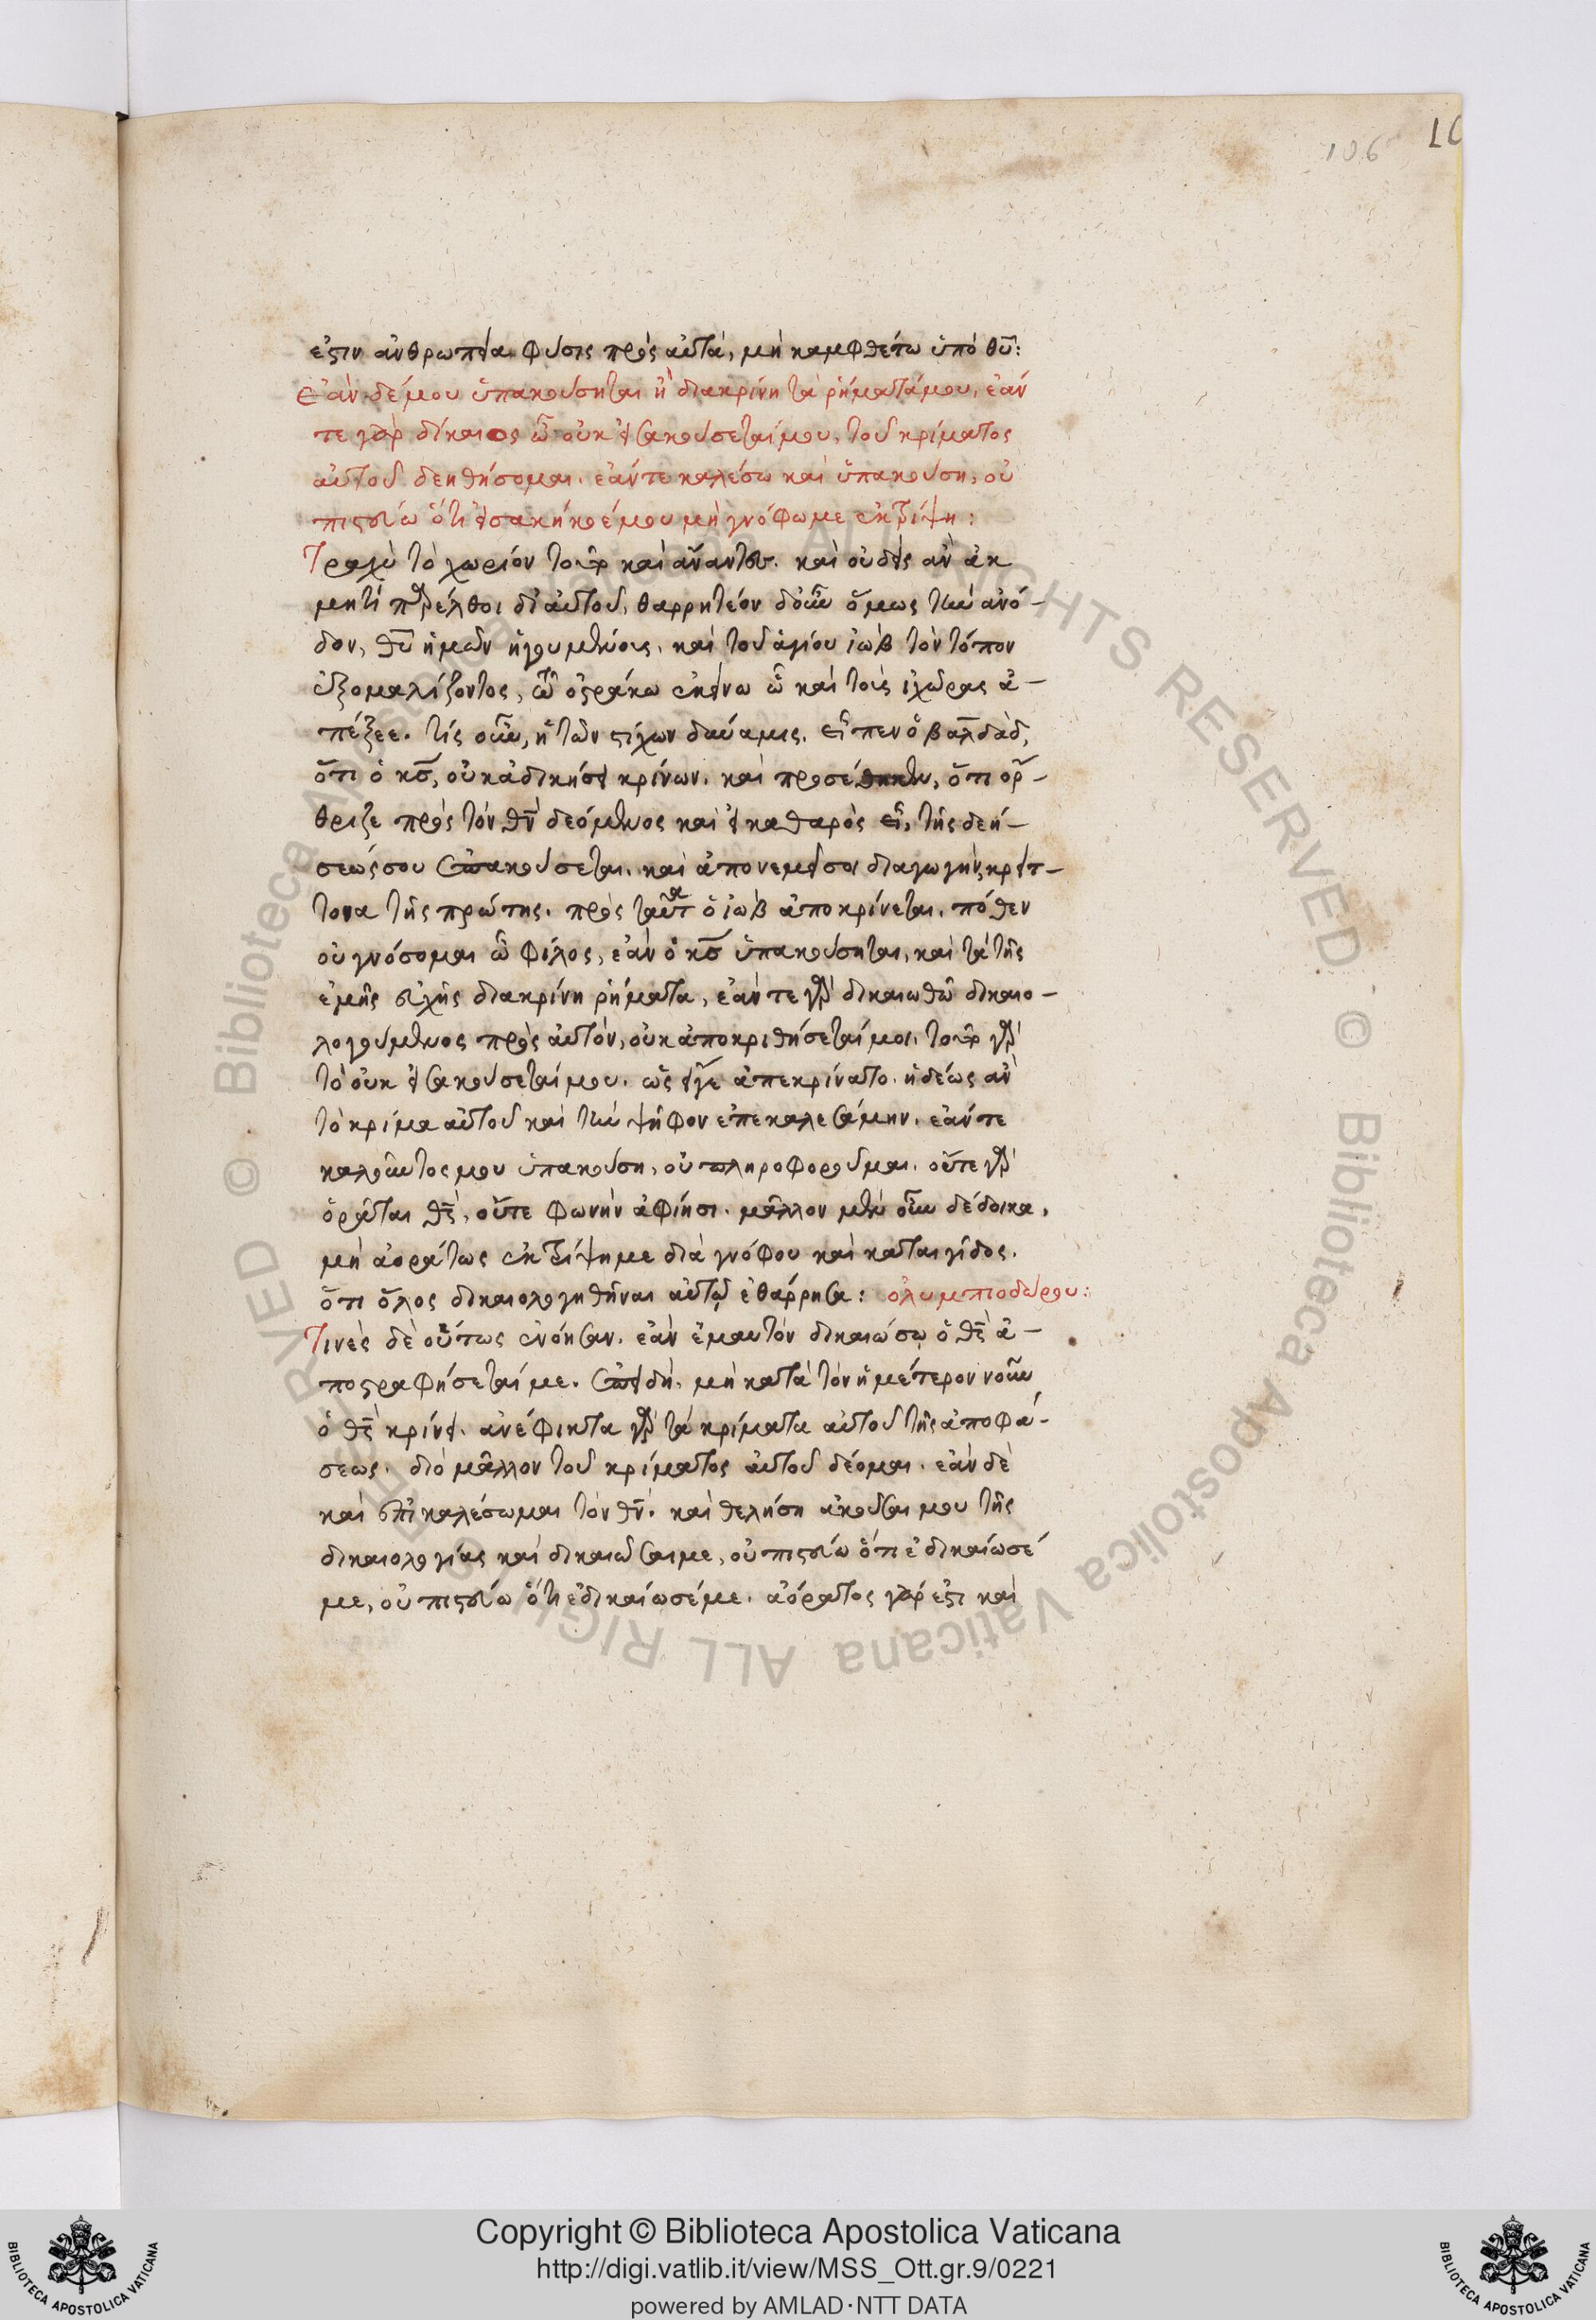 106
ἐστὶν ἀνθρωπεία φύσις πρὸς αὐτά, μὴ καμφθείτω ὑπὸ θῦ:
Ἐὰν δέ μου ὑπακούσηται ἢ διακρίνη τὰ ῥήματά μου, ἐάν
τε γὰρ δίκαιος ὦ οὐκ εἰσακούσεταί μου, τοῦ κρίματος
αὐτοῦ δεηθήσομαι. ἐάν τε καλέσω καὶ ὑπακούση, οὐ
πιστεύω ὅτι εἰσακήκοέ μου μὴ γνόφω με ἐκτρίψη:
Τραχὺ τὸ χωρίον τοῦτο καὶ ἄναντες. καὶ οὐδεὶς ἂν ἀκ
μητὶ παρέλθοι δι' αὐτοῦ, θαρρητέον δ' οὖν ὅμως τὴν ἄνο-
δον, θῦ ἡμῶν ἡγουμένου, καὶ τοῦ ἁγίου ἰὼβ τὸν τόπον
ἐξομαλίζοντος, τῶ ὀστράκω ἐκείνω ὧ καὶ τοὺς ἰχῶρας ἀ-
πέξεε. τίς οὖν, ἡ τῶν στίχων δύναμις. εἶπεν ὁ βαλδὰδ,
ὅτι ὁ κς, οὐκ ἀδικήσει κρίνων. καὶ προσέθηκεν, ὅτι ὄρ-
θριζε πρὸς τὸν θν δεόμενος καὶ εἰ καθαρὸς εἶ, τῆς δεή-
σεώς σου ἐπακούσεται. καὶ ἀπονεμεῖ σοι διαγωγὴν κρείτ-
τονα τῆς πρώτης. πρὸς ταῦτα ὁ ἰὼβ ἀποκρίνεται. πόθεν
οὐ γνώσομαι ὦ φίλος, ἐὰν ὁ κς ὑπακούσηται, καὶ τὰ τῆς
ἐμῆς εὐχῆς διακρίνη ῥήματα, ἐάν τε γὰρ δικαιωθῶ δικαιο-
λογούμενος πρὸς αὐτόν, οὐκ ἀποκριθήσεταί μοι. τοῦτο γὰρ
τὸ οὐκ εἰσακούσεταί μου. ὡς εἴγε ἀπεκρίνατο. ἡδέως ἂν
τὸ κρίμα αὐτοῦ καὶ τὴν ψῆφον ἐπεκαλεσάμην. ἐάν τε
καλοῦντος μου ὑπακούση, οὐ πληροφοροῦμαι. οὔτε γὰρ
ὁρᾶται θς, οὔτε φωνὴν ἀφίησι. μᾶλλον μὲν οὖν δέδοικα,
μὴ ἀοράτως ἐκτρίψη με διὰ γνόφου καὶ καταιγίδος.
ὅτι ὅλος δικαιολογηθῆναι αὐτῷ ἐθάρρησα: ὀλυμπιοδώρου:
Τινὲς δὲ οὕτως ἐνόησαν. ἐὰν ἐμαυτὸν δικαιώσω ὁ θς ἀ-
ποστραφήσεταί με. ἐπειδὴ μὴ κατὰ τὸν ἡμέτερον νοῦν
ὁ θς κρίνει. ἀνέφικτα γὰρ τὰ κρίματα αὐτοῦ τῆς ἀποφά-
σεως. διὸ μᾶλλον τοῦ κρίματος αὐτοῦ δέομαι. ἐὰν δὲ
καὶ ἐπικαλέσωμαι τὸν θν. καὶ θελήση ἀκοῦσαι μου τῆς
δικαιολογίας καὶ δικαιῶσαι με, οὐ πιστεύω ὅτι ἐδικαίωσέ
με, οὐ πιστεύω ὅτι ἐδικαίωσέ με. ἀόρατος γάρ ἐστι καὶ
© Biblioteca Apostolica Vaticana ALL RIGHTS RESERVED
Copyright © Biblioteca Apostolica Vaticana
http://digi.vatlib.it/view/MSS_Ott.gr.9/0221
powered by AMLAD·NTT DATA
BIBLIOTECA APOSTOLICA VATICANA
BIBLIOTECA APOSTOLICA VATICANA